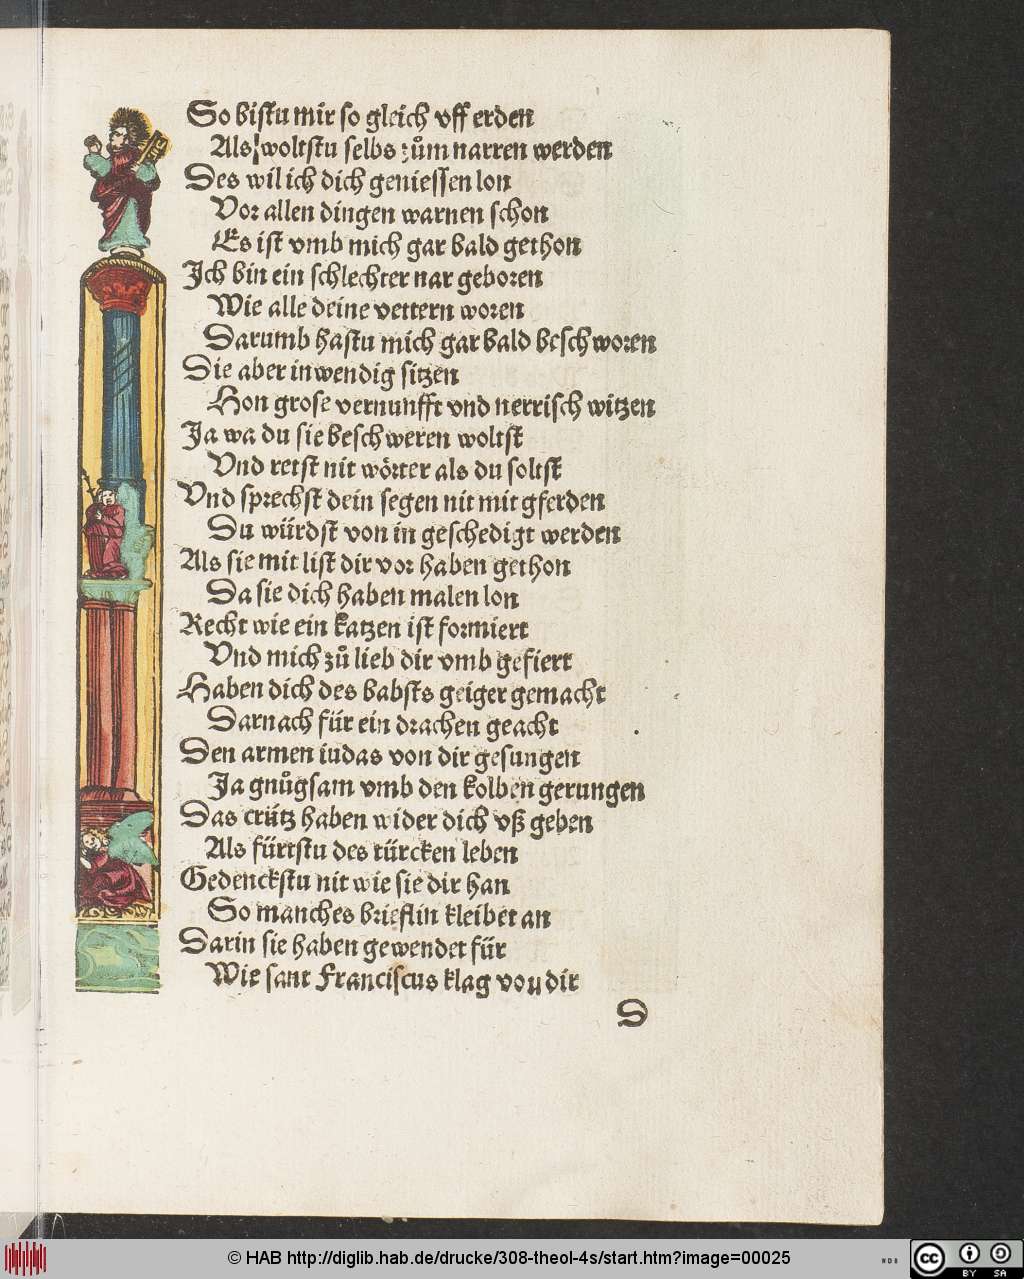 So bistu mir so gleich vff erden
Als woltstu selbs zům narren werden
Des wil ich dich geniessen lon
Vor allen dingen warnen schon
Es ist vmb mich gar bald gethon
Ich bin ein schlechter nar geboren
Wie alle deine vettern woren
Darumb hastu mich gar bald beschworen
Die aber inwendig sitzen
Hon grose vernunfft vnd nerrisch witzen
Ja wa du sie beschweren woltst
Vnd retst nit wörter als du soltst
Vnd sprechst dein segen nit mit gferden
Du würdst von in geschedigt werden
Als sie mit list dir vor haben gethon
Da sie dich haben malen lon
Recht wie ein katzen ist formiert
Vnd mich zů lieb dir vmb gefiert
Haben dich des babsts geiger gemacht
Darnach für ein drachen geacht
Den armen iudas von dir gesungen
Ja gnůgsam vmb den kolben gerungen
Das crütz haben wider dich vß geben
Als fürtstu des türcken leben
Gedenckstu nit wie sie dir han
So manches brieflin kleibet an
Darin sie haben gewendet für
Wie sant Franciscus klag von dir
D
© HAB http://diglib.hab.de/drucke/308-theol-4s/start.htm?image=00025
WDB
cc
BY SA